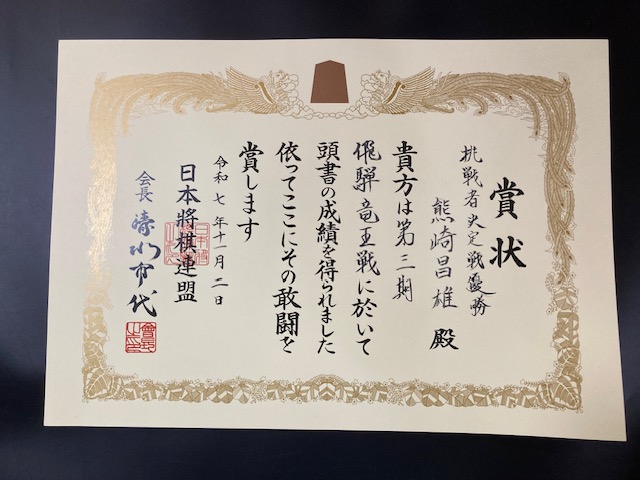 賞状
挑戦者決定戦優勝
熊崎昌雄 殿
貴方は第三期
飛騨竜王戦に於いて
頭書の成績を得られました
依ってここにその敢闘を
賞します
令和七年十一月二日
日本将棋連盟
会長 清水市代